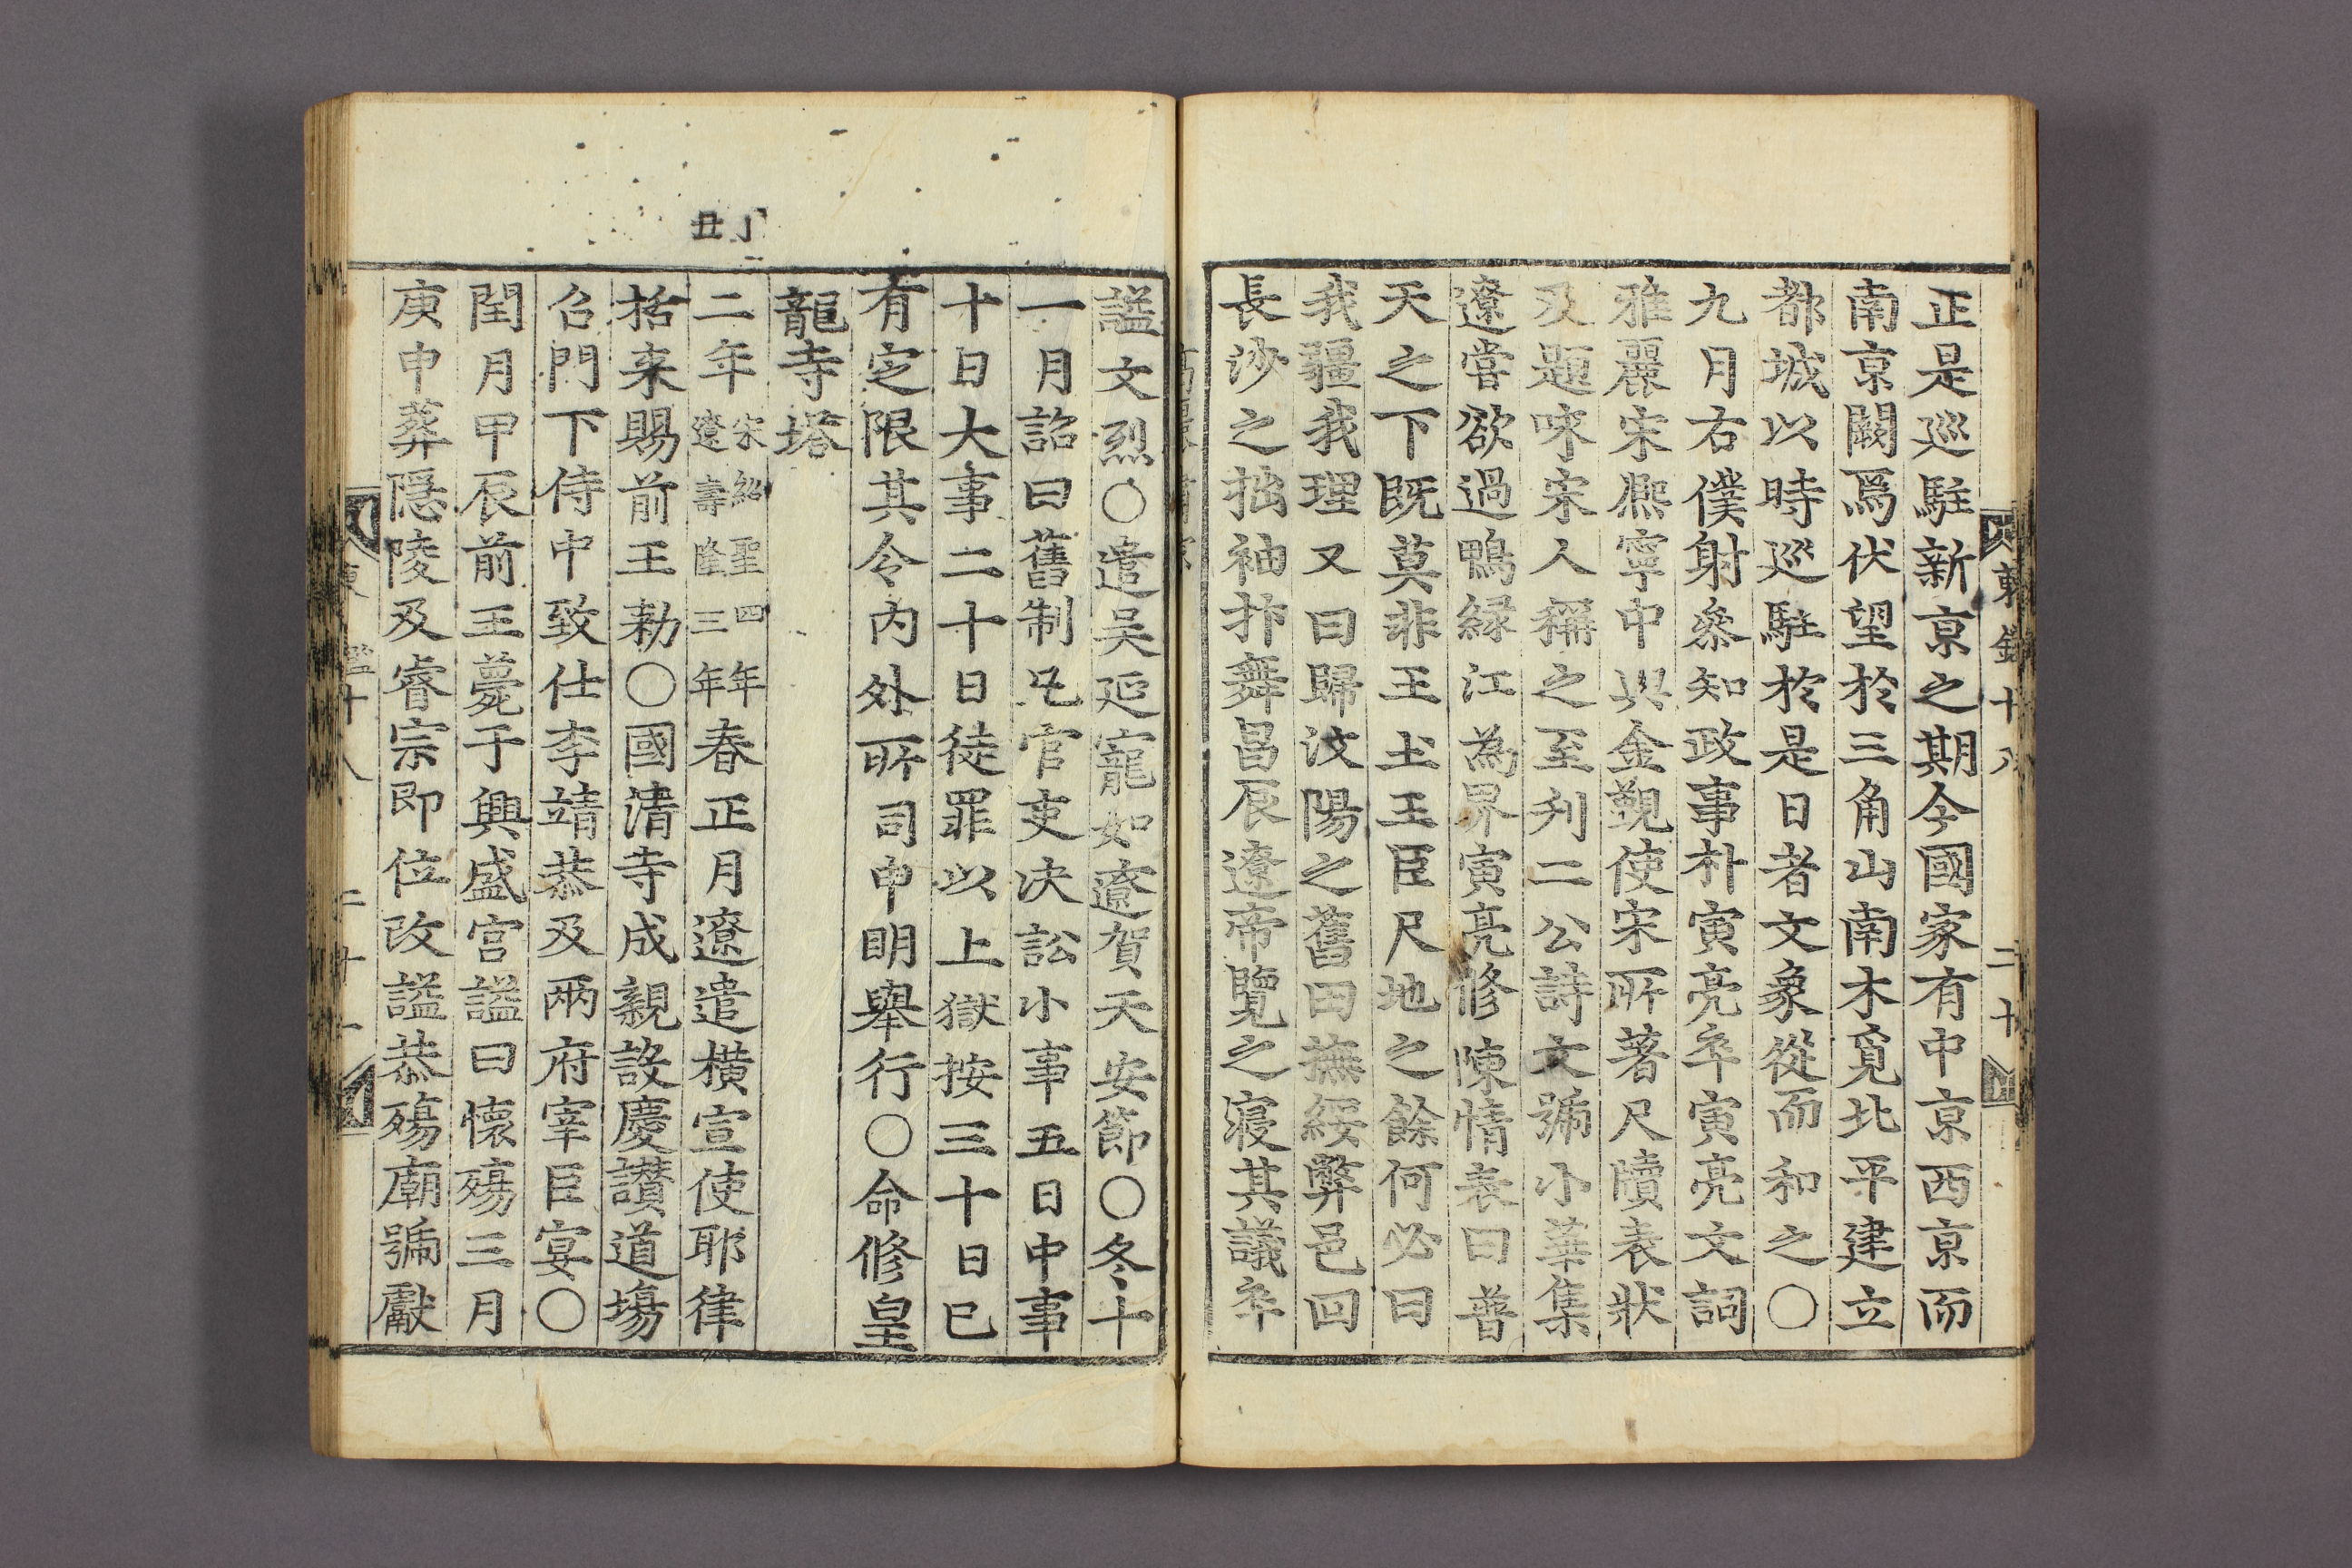 正是巡駐新京之期今國家有中京西京而
南京闕焉伏望於三角山南木覓北平建立
都城以時巡駐於是日者文象從而和之〇
九月右僕射叅知政事朴寅亮卒寅亮文詞
雅麗宋熈寧中與金覲使宋所著尺牘表狀
及題咏宋人稱之至刋二公詩文號小華集
遼嘗欲過鴨緑江為界寅亮修陳情表曰普
天之下既莫非王土王臣尺地之餘何必曰
我疆我理又曰歸汶陽之舊田撫綏弊邑回
長沙之拙袖抃舞昌辰遼帝覽之寢其議卒
東鑑十八
二十
謚文烈〇遣吴延寵如遼賀天安節〇冬十
一月詔曰舊制凡官吏决訟小事五日中事
十日大事二十日徒罪以上獄按三十日已
有定限其令内外所司申明舉行〇命修皇
龍寺塔
丁丑
二年宋紹聖四年遼壽隆三年春正月遼遣橫宣使耶律
括来賜前王勑〇國清寺成親設慶讃道場
召門下侍中致仕李靖恭及兩府宰臣宴〇
閏月甲辰前王薨于興盛宫謚曰懷殤三月
庚申葬隱陵及睿宗即位改謚恭殤廟號獻
東鑑十八
二十一